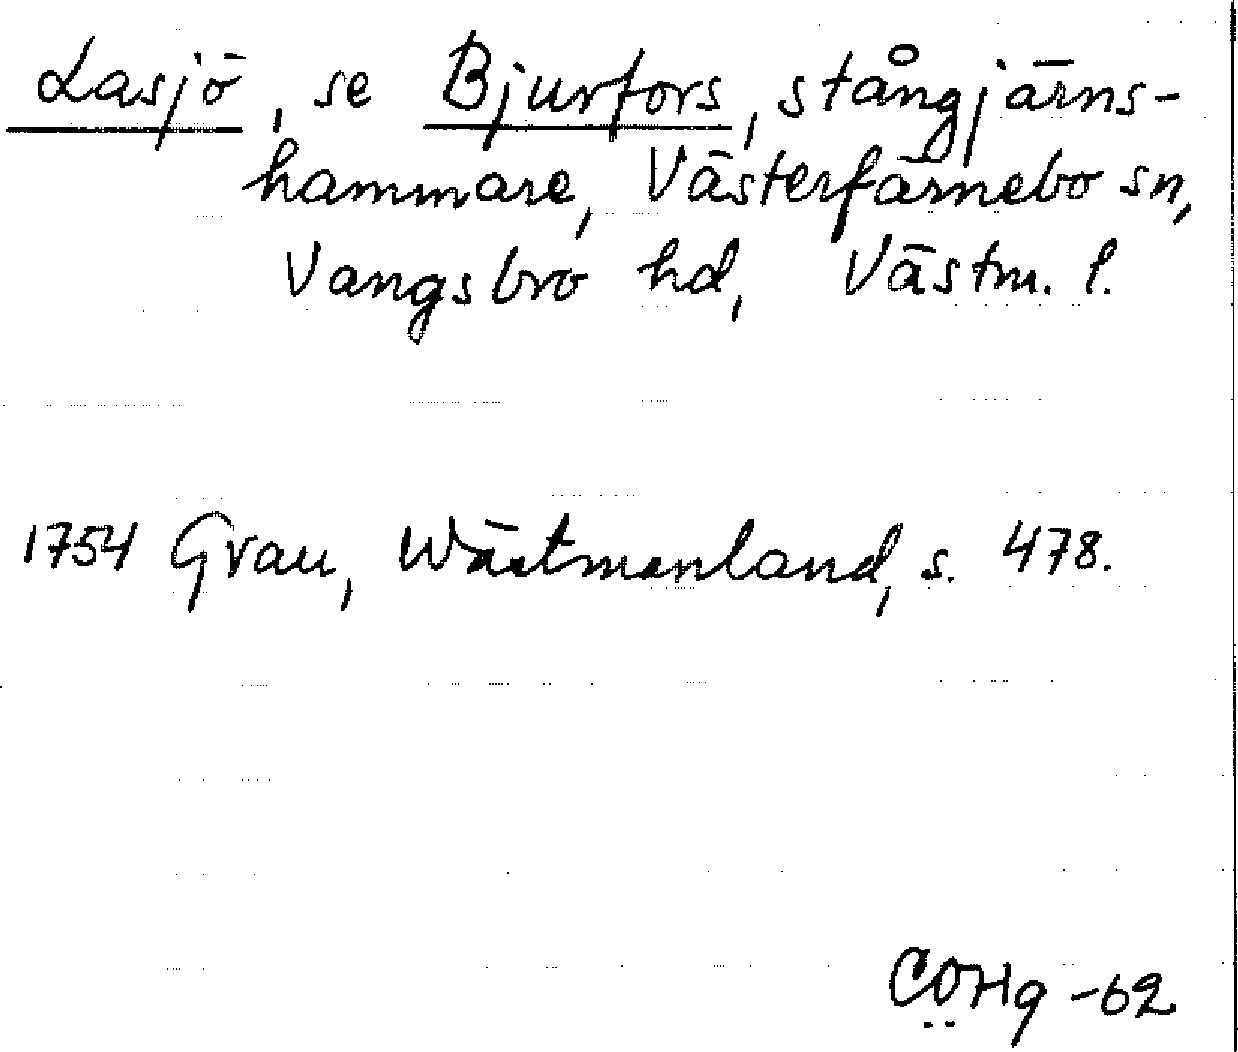 Lasjö, se Bjurfors, stångjärns-
hammare, Västerfärnebo sn,
Vangsbro hd, Västm. l.
1754 Grau, Wästmanland, s. 478.
COHg -62